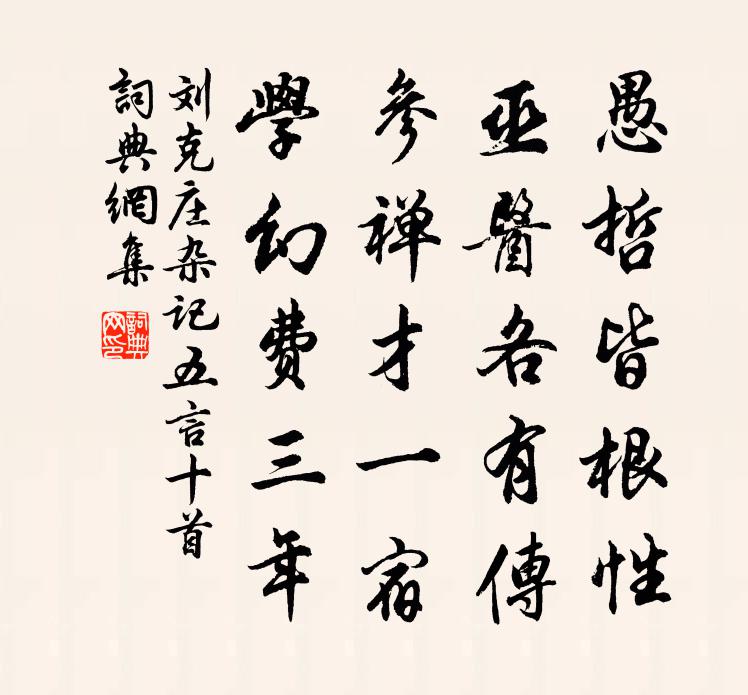 愚哲皆根性
巫醫各有傳
參禅才一宿
學幻费三年
刘克庄杂记五言十首
詞典網集
詞典网印